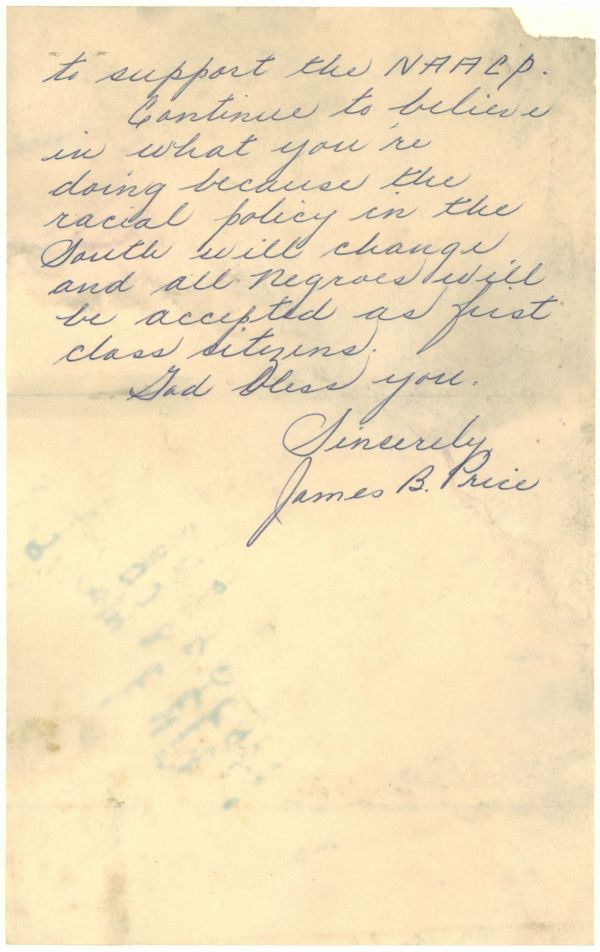 to support the NAACP.
Continue to believe
in what you're
doing because the
racial policy in the
South will change
and all Negroes will
be accepted as first
class citizens.
God Bless you.
Sincerely,
James B. Price